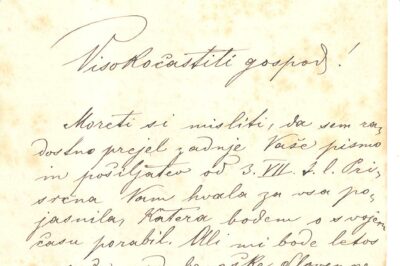 Visokočastiti gospod!
Moreti si misliti, da sem ra-
dostno prejel zadnje Vaše pismo
in pošiljatev od 3. VII. t. l. Pri-
srčna Vam hvala za vsa po-
jasnila, katera bodem o svojem
času porabil. Ali mi bode letos